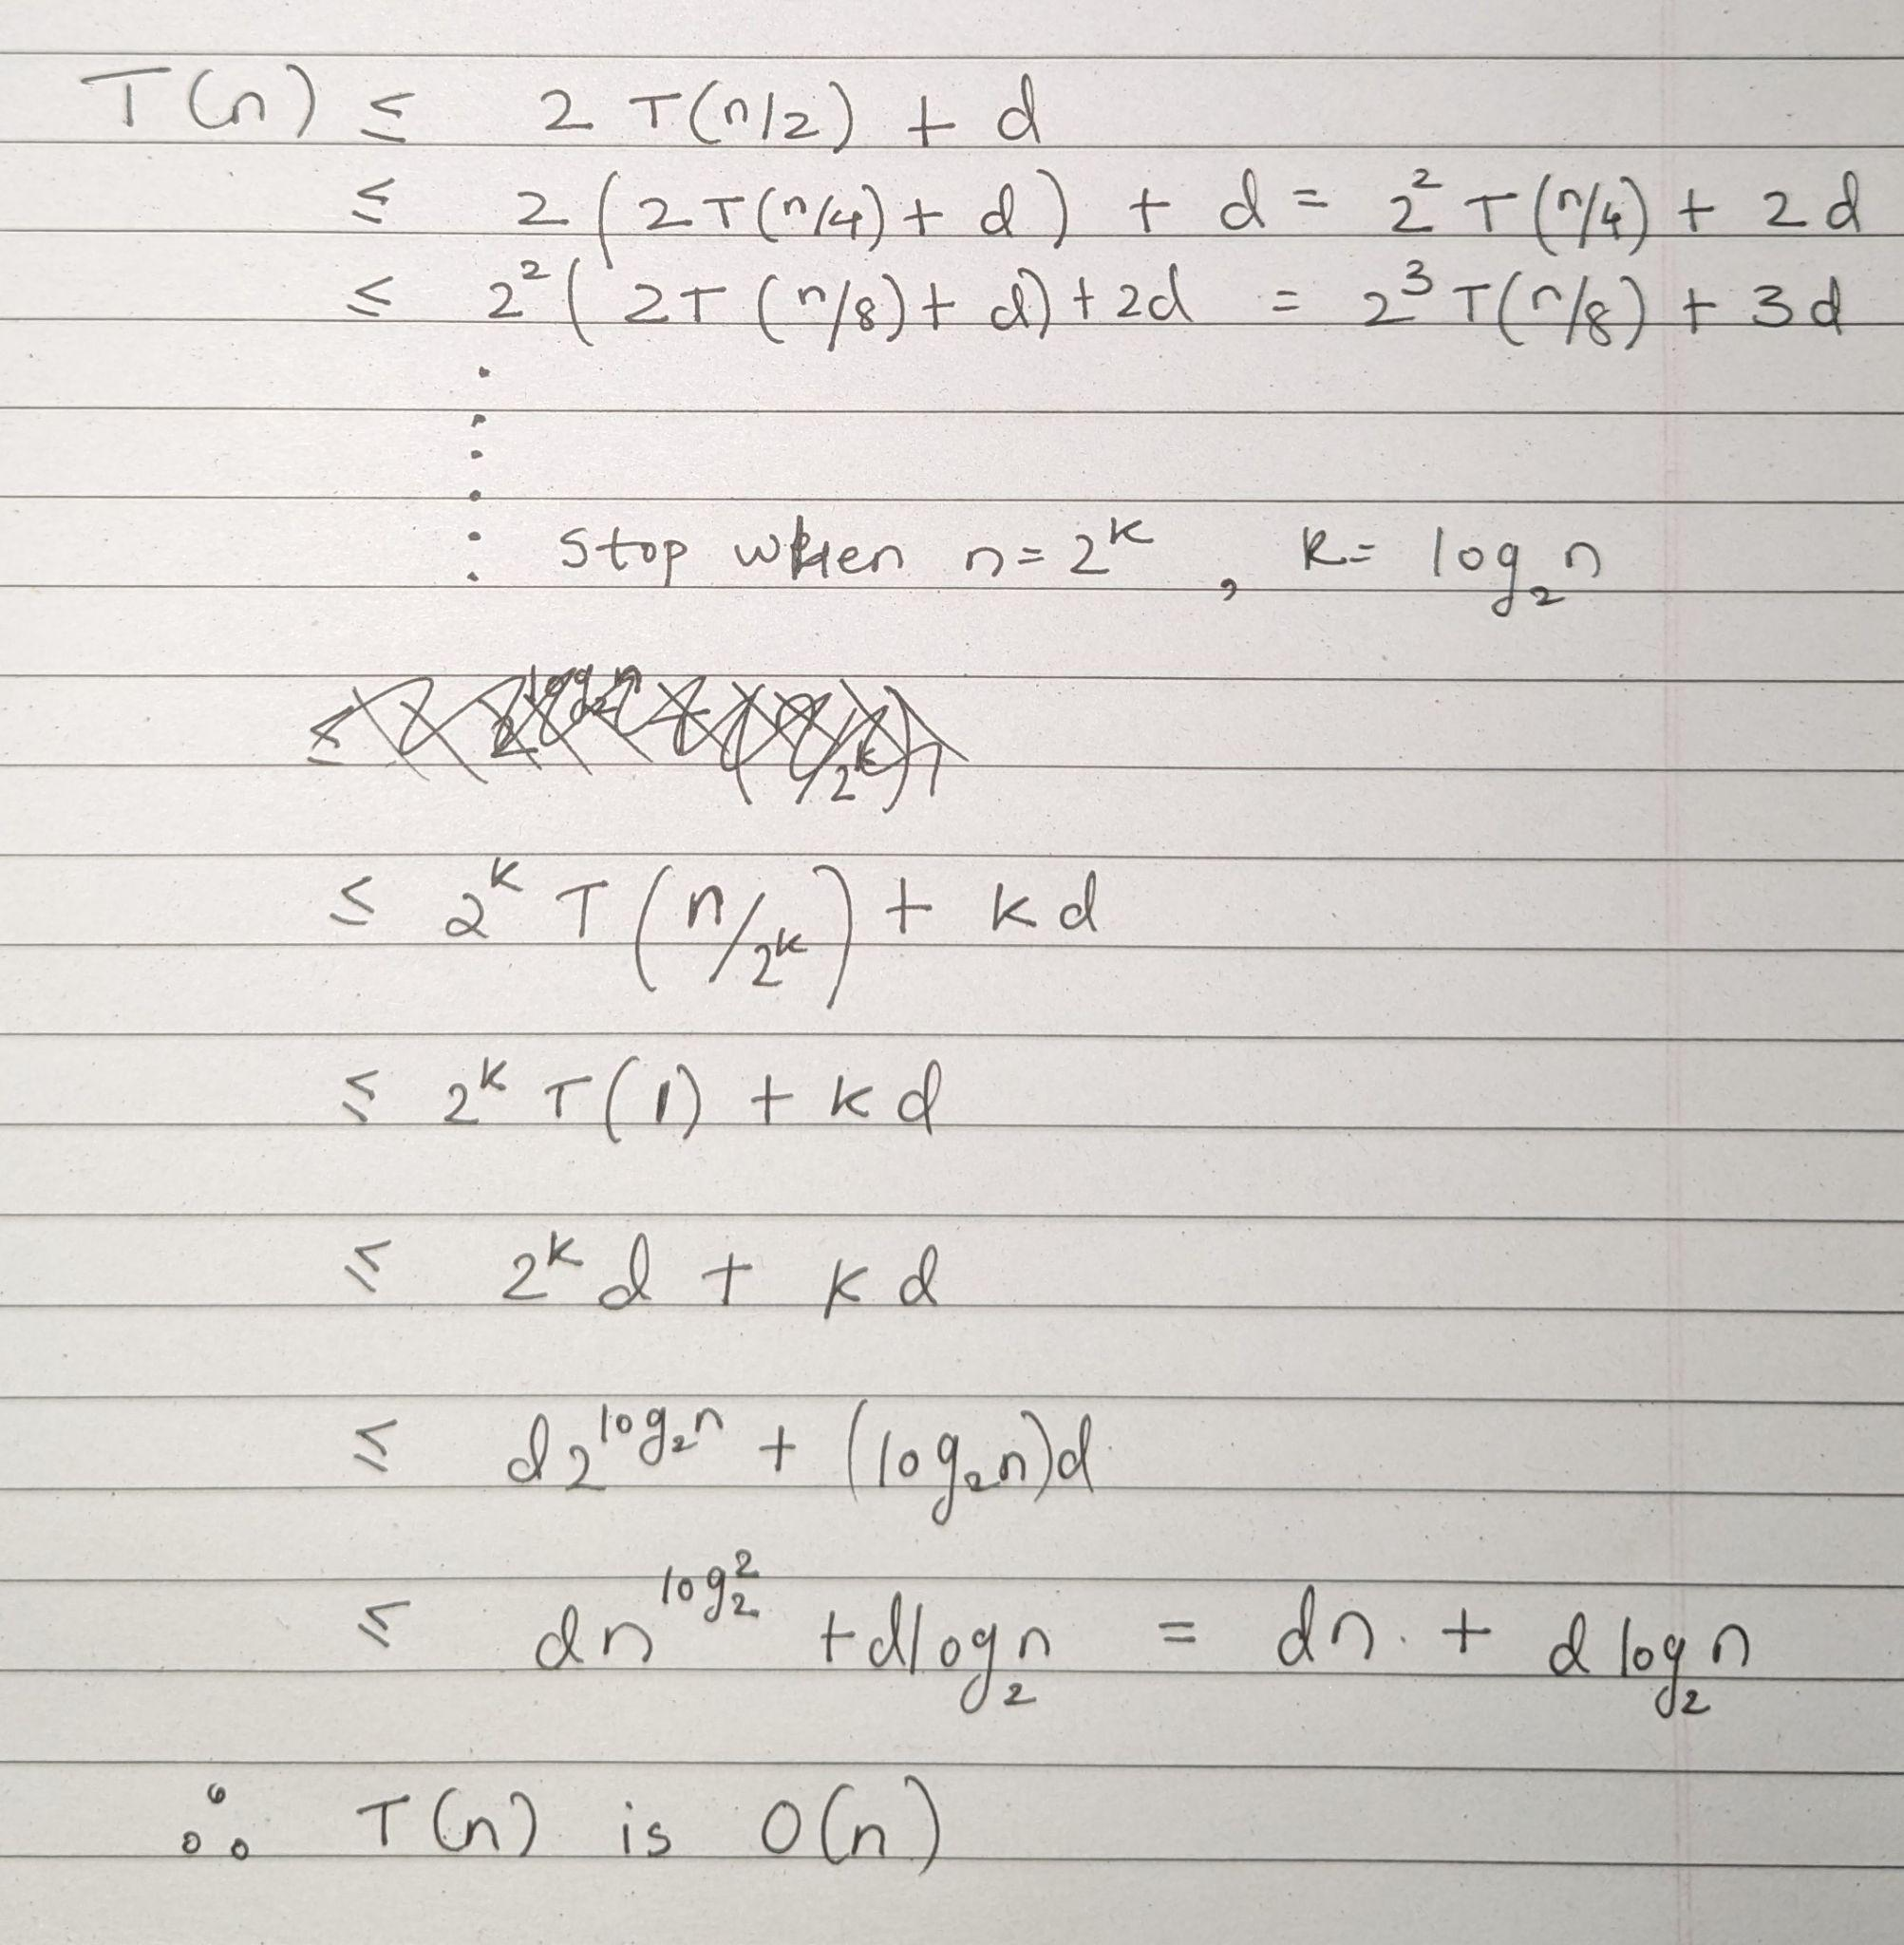 T(n) ≤ 2 T(n/2) + d
≤ 2 ( 2T(n/4) + d ) + d = 2² T(n/4) + 2d
≤ 2² ( 2T (n/8) + d) + 2d = 2³ T(n/8) + 3d
Stop when n = 2^k , k = log₂n
≤ 2^k T (n/2^k) + kd
≤ 2^k T(1) + kd
≤ 2^k d + kd
≤ d2^(log₂n) + (log₂n)d
≤ dn^(log₂2) + dlog₂n = dn. + d log₂n
∴ T(n) is O(n)